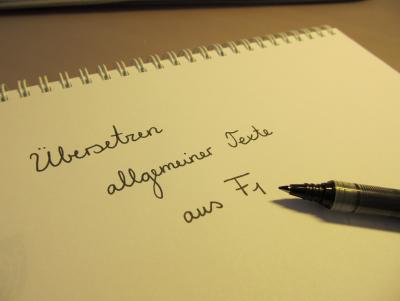 Übersetzen
allgemeiner Texte
aus F1